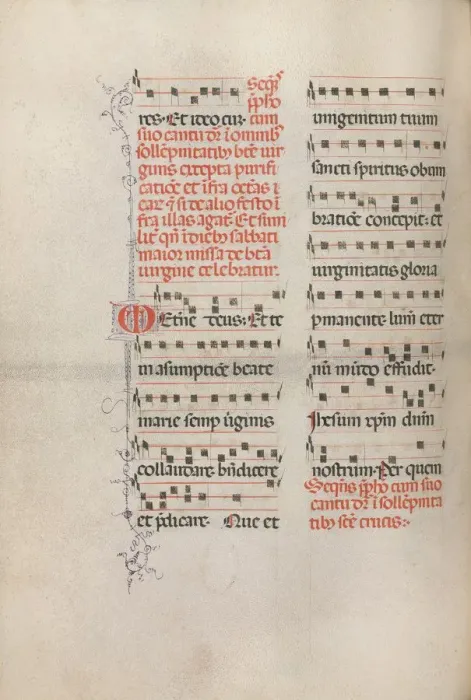 Seq̄ns
p̄pho
res. Et ideo cū. cum
suo cantu dr̄ ī omnibꝫ
sollēpnitatibꝫ bēē uir
ginis excepta purifi
catiōe et īfra octas ı
ear̄ q̄ si de alio festo ī
fra illas agat̄ Et simi
lit̄ qn̄ ī diebꝫ sabbati
maior missa de bēā
uirgine celebratur.
Et̄ne deus: Et te
in asumptiōe beate
marie semp ūginis
collaudare. bn̄dicere
et p̄dicare. Que et
unigenitum tuum
sancti spiritus obum
bratiōe concepit: et
uirginitatis gloria
pmanente. lum̄ eter
nū mūdo effudit.
Ihesum xp̄m dn̄m
nostrum. Per quem
Seq̄ns p̄pho cum suo
cantu dr̄ ī sollēpnita
tibꝫ scē crucis:.